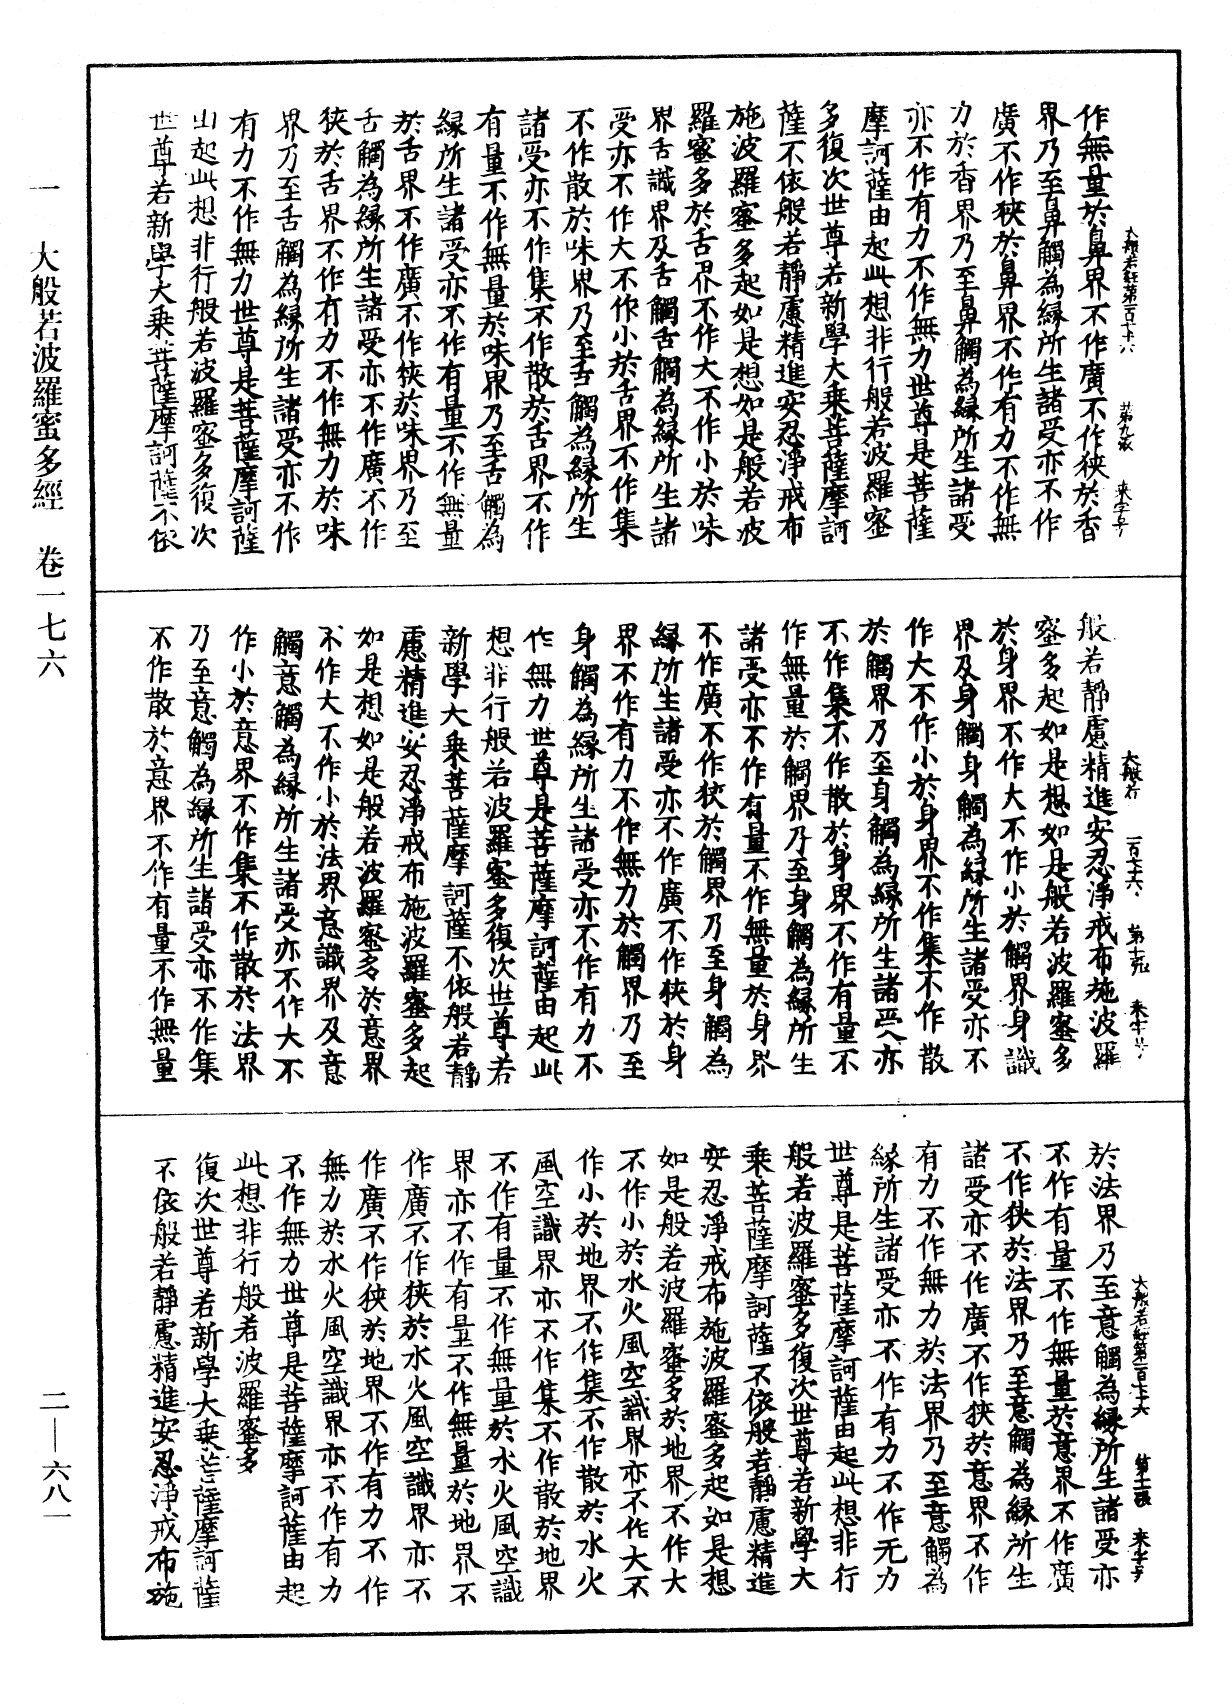 作無量於鼻界不作廣不作狹於香
界乃至鼻觸為緣所生諸受亦不作
廣不作狹於鼻界不作有力不作無
力於香界乃至鼻觸為緣所生諸受
亦不作有力不作無力世尊是菩薩
摩訶薩由起此想非行般若波羅蜜
多復次世尊若新學大乘菩薩摩訶
薩不依般若靜慮精進安忍淨戒布
施波羅蜜多起如是想如是般若波
羅蜜多於舌界不作大不作小於味
界舌識界及舌觸舌觸為緣所生諸
受亦不作大不作小於舌界不作集
不作散於味界乃至舌觸為緣所生
諸受亦不作集不作散於舌界不作
有量不作無量於味界乃至舌觸為
緣所生諸受亦不作有量不作無量
於舌界不作廣不作狹於味界乃至
舌觸為緣所生諸受亦不作廣不作
狹於舌界不作有力不作無力於味
界乃至舌觸為緣所生諸受亦不作
有力不作無力世尊是菩薩摩訶薩
由起此想非行般若波羅蜜多復次
世尊若新學大乘菩薩摩訶薩不依
大般若經第一百七十六 第九張 來字号
般若靜慮精進安忍淨戒布施波羅
蜜多起如是想如是般若波羅蜜多
於身界不作大不作小於觸界身識
界及身觸身觸為緣所生諸受亦不
作大不作小於身界不作集不作散
於觸界乃至身觸為緣所生諸受亦
不作集不作散於身界不作有量不
作無量於觸界乃至身觸為緣所生
諸受亦不作有量不作無量於身界
不作廣不作狹於觸界乃至身觸為
緣所生諸受亦不作廣不作狹於身
界不作有力不作無力於觸界乃至
身觸為緣所生諸受亦不作有力不
作無力世尊是菩薩摩訶薩由起此
想非行般若波羅蜜多復次世尊若
新學大乘菩薩摩訶薩不依般若靜
慮精進安忍淨戒布施波羅蜜多起
如是想如是般若波羅蜜多於意界
不作大不作小於法界意識界及意
觸意觸為緣所生諸受亦不作大不
作小於意界不作集不作散於法界
乃至意觸為緣所生諸受亦不作集
不作散於意界不作有量不作無量
大般若
於法界乃至意觸為緣所生諸受亦
不作有量不作無量於意界不作廣
不作狹於法界乃至意觸為緣所生
諸受亦不作廣不作狹於意界不作
有力不作無力於法界乃至意觸為
緣所生諸受亦不作有力不作无力
世尊是菩薩摩訶薩由起此想非行
般若波羅蜜多復次世尊若新學大
乘菩薩摩訶薩不依般若靜慮精進
安忍淨戒布施波羅蜜多起如是想
如是般若波羅蜜多於地界不作大
不作小於水火風空識界亦不作大不
作小於地界不作集不作散於水火
風空識界亦不作集不作散於地界
不作有量不作無量於水火風空識
界亦不作有量不作無量於地界不
作廣不作狹於水火風空識界亦不
作廣不作狹於地界不作有力不作
無力於水火風空識界亦不作有力
不作無力世尊是菩薩摩訶薩由起
此想非行般若波羅蜜多
復次世尊若新學大乘菩薩摩訶薩
不依般若靜慮精進安忍淨戒布施
一 大般若波羅蜜多經 卷一七六
二—六八一